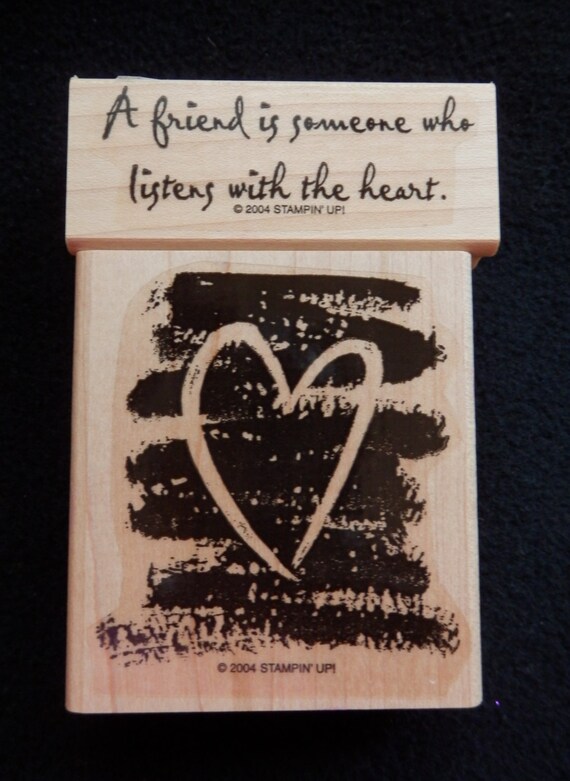 A friend is someone who
listens with the heart.
© 2004 STAMPIN' UP!
© 2004 STAMPIN' UP!